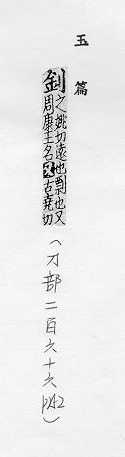 玉篇
釗
之姚切遠也也又
周康王名又古堯切
(刀部二百六十六 p82)